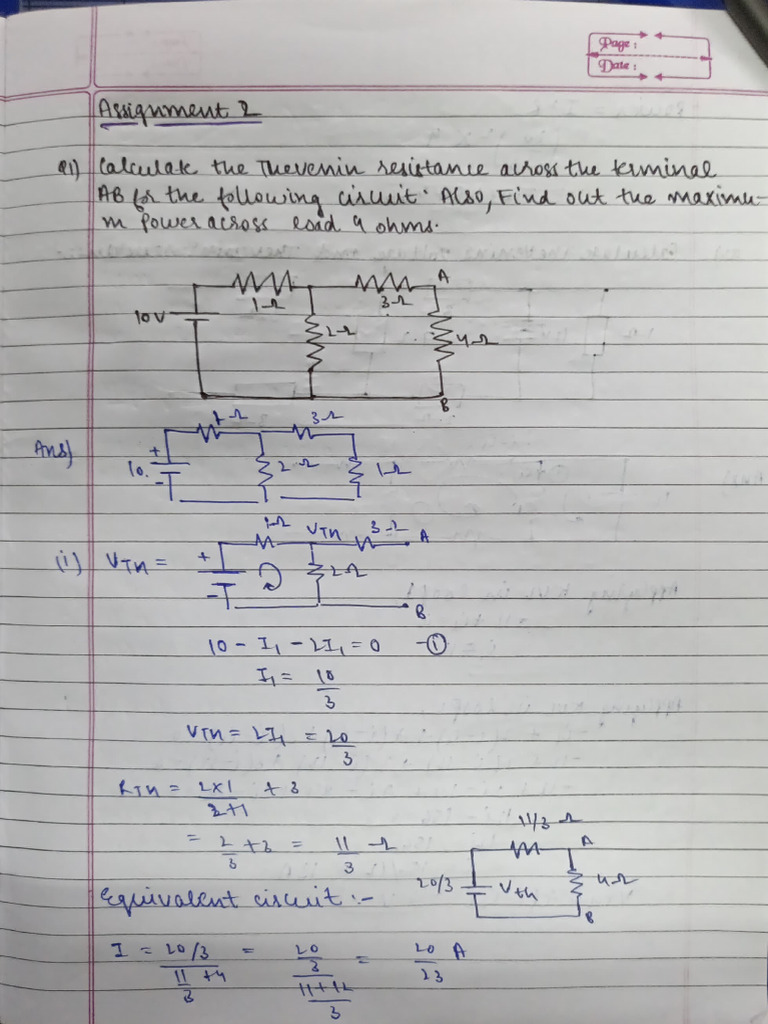 Page :
Date :
Assignment 2
Q1) Calculate the Thevenin resistance across the terminal
AB for the following circuit. Also, Find out the maximu-
m Power across load 4 ohms.
1Ω 3Ω A
10V 2Ω 4Ω
B
Ans)
1Ω 3Ω
10. + - 2Ω 1Ω
(i) VTh = + - 1Ω VTh 3Ω A
2Ω
B
10 - I1 - 2I1 = 0 -①
I1 = 10/3
VTh = 2I1 = 20/3
RTh = 2×1/2+1 + 3
= 2/3 + 3 = 11/3 Ω
11/3 Ω A
20/3 Vth 4Ω
B
Equivalent circuit :-
I = 20/3 / 11/3 + 4 = 20/3 / 11+12/3 = 20/23 A